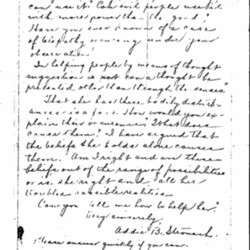 can use it? Can evil people use it
with more power than the good?
Have you ever known of a case
of under your
observation?
In helping people by means of thought
suggestion is not can a thought be
presented other than through the senses?
That she has these bodily disturb-
ances is a fact. How would you ex-
plain their occurrence? What does
cause them? I have argued that
the beliefs she holds alone causes
them. Am I right and are these
beliefs out of the range of possibilities
or is she right and all her
troubles
Can you tell me how to help her?
Very sincerely,
Addie B.
Please answer quickly if you can.